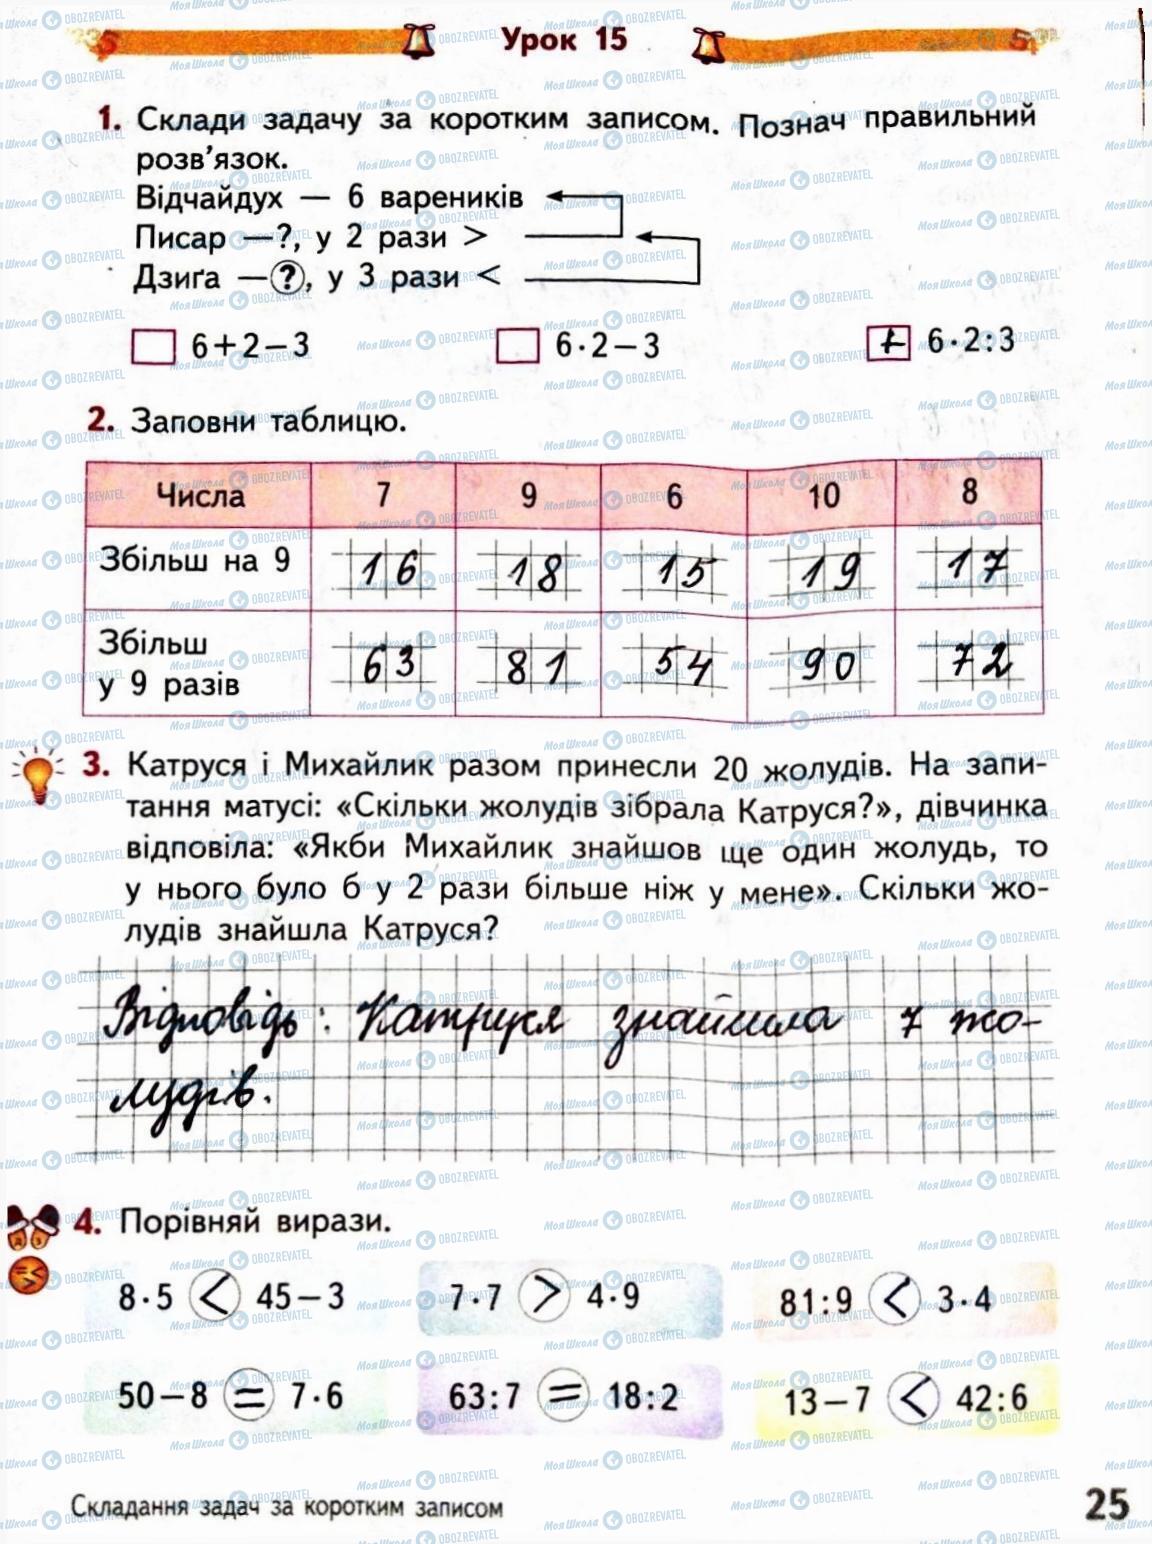 Урок 15
1. Склади задачу за коротким записом. Познач правильний
розв'язок.
Відчайдух — 6 вареників
Писар —?, у 2 рази >
Дзиґа —?, у 3 рази <
6+2−3
6·2−3
+ 6·2:3
2. Заповни таблицю.
Числа 7 9 6 10 8
Збільш на 9 16 18 15 19 17
Збільш
у 9 разів 63 81 54 90 72
3. Катруся і Михайлик разом принесли 20 жолудів. На запи-
тання матусі: «Скільки жолудів зібрала Катруся?», дівчинка
відповіла: «Якби Михайлик знайшов ще один жолудь, то
у нього було б у 2 рази більше ніж у мене». Скільки жо-
лудів знайшла Катруся?
Відповідь: Катруся знайшла 7 жо-
лудів.
4. Порівняй вирази.
8·5 < 45−3 7·7 > 4·9 81:9 < 3·4
50−8 = 7·6 63:7 = 18:2 13−7 < 42:6
Складання задач за коротким записом
25
МояШкола OBOZREVATEL